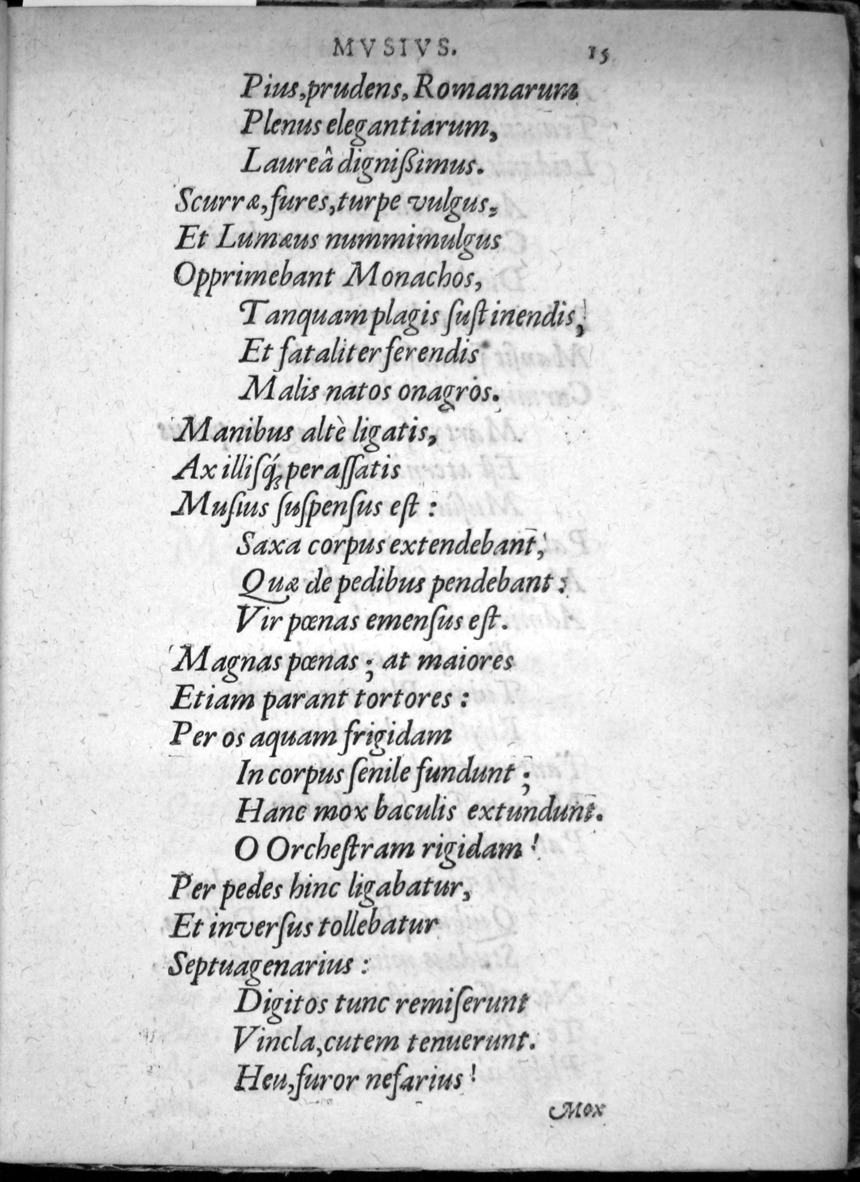 MVSIVS. 15
Pius,prudens, Romanarum
Plenus elegantiarum,
Laureâ dignißimus.
Scurræ,fures,turpe vulgus,
Et Lumæus nummimulgus
Opprimebant Monachos,
Tanquam plagis ſuſtinendis,
Et fataliter ferendis
Malis natos onagros.
Manibus altè ligatis,
Axilliſq́; peraſſatis
Muſius ſuſpenſus eſt :
Saxa corpus extendebant,
Quæ de pedibus pendebant :
Vir pœnas emenſus eſt.
Magnas pœnas ; at maiores
Etiam parant tortores :
Per os aquam frigidam
In corpus ſenile fundunt ;
Hanc mox baculis extundunt.
O Orcheſtram rigidam !
Per pedes hinc ligabatur,
Et inverſus tollebatur
Septuagenarius :
Digitos tunc remiſerunt
Vincla,cutem tenuerunt.
Heu,furor nefarius !
Mox